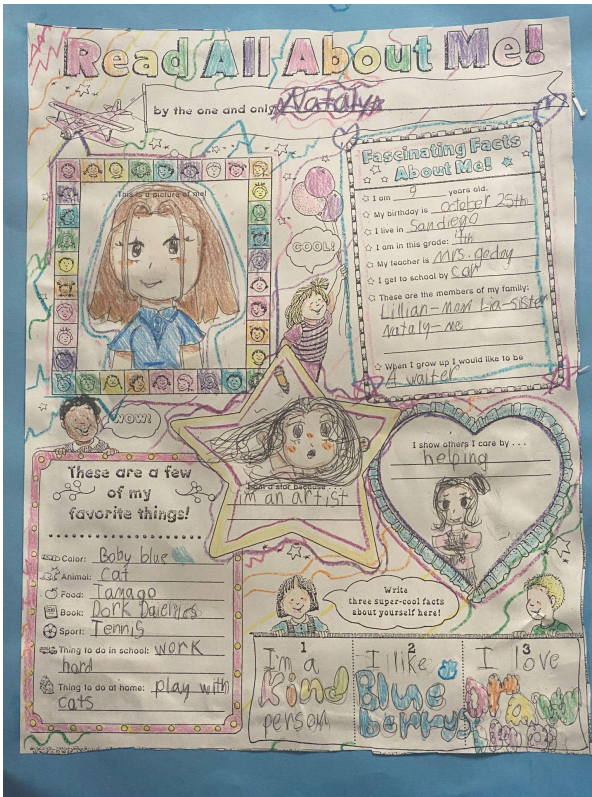 Read All About Me!
by the one and only Nataly
This is a picture of me!
COOL!
Fascinating Facts
About Me!
I am 9 years old.
My birthday is October 25th
I live in Sandiego
I am in this grade: 4th
My teacher is Mrs. Godoy
I get to school by car
These are the members of my family:
Lillian-mom Lia-sister
Nataly-me
When I grow up I would like to be
A waiter
WOW!
These are a few
of my
favorite things!
Color: Baby blue
Animal: cat
Food: Tamago
Book: Dork Daieries
Sport: Tennis
Thing to do in school: work
hard
Thing to do at home: play with
cats
I am a star because . . .
im an artist
I show others I care by . . .
helping
Write
three super-cool facts
about yourself here!
1
I'm a
Kind
person
2
I like
Blue
berrys
3
I love
Draw